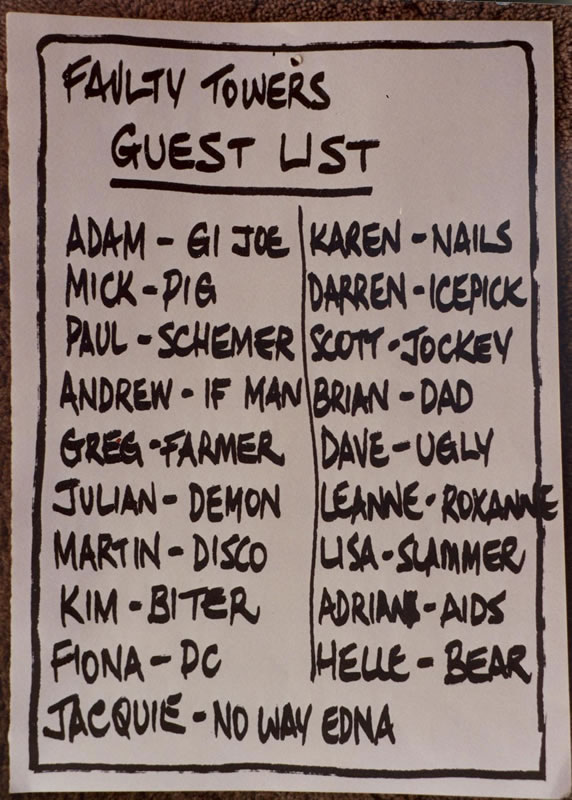 FAULTY TOWERS
GUEST LIST
ADAM - GI JOE
MICK - PIG
PAUL - SCHEMER
ANDREW - IF MAN
GREG - FARMER
JULIAN - DEMON
MARTIN - DISCO
KIM - BITER
FIONA - DC
JACQUIE - NO WAY EDNA
KAREN - NAILS
DARREN - ICEPICK
SCOTT - JOCKEY
BRIAN - DAD
DAVE - UGLY
LEANNE - ROXANNE
LISA - SLAMMER
ADRIAN - AIDS
HELLE - BEAR